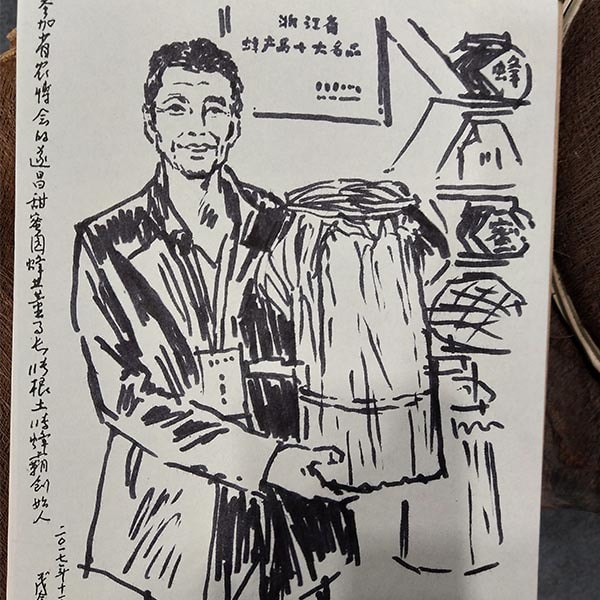 参加省农博会的遂昌甜蜜园蜂业董事长
根土
蜂霸创始人
二〇一七年十一
浙江省
蜂产品十大名品
蜂
蜜